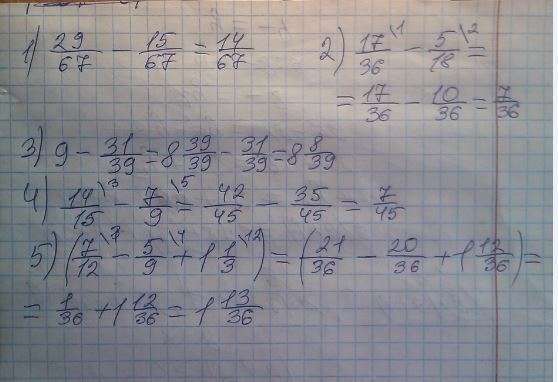 1) 29/67 - 15/67 = 14/67
2) 17/36 \1 - 5/18 \2 =
= 17/36 - 10/36 = 7/36
3) 9 - 31/39 = 8 39/39 - 31/39 = 8 8/39
4) 14/15 \3 - 7/9 \5 = 42/45 - 35/45 = 7/45
5) (7/12 \3 - 5/9 \4 + 1 1/3 \12) = (21/36 - 20/36 + 1 12/36) =
= 1/36 + 1 12/36 = 1 13/36